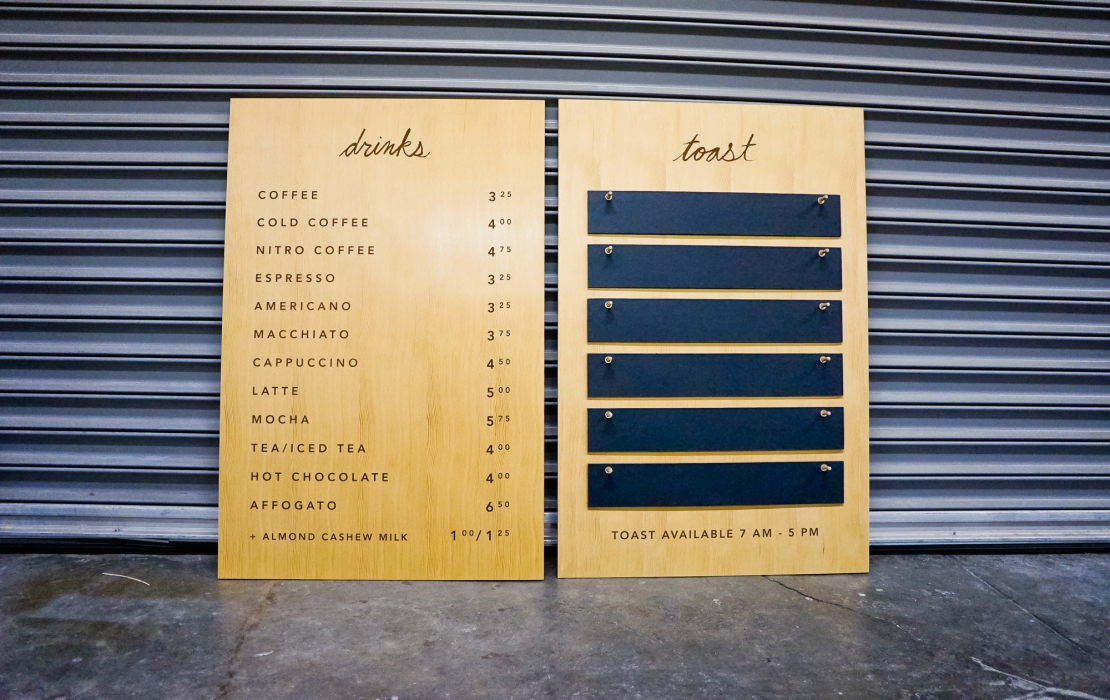 drinks
COFFEE 3 25
COLD COFFEE 4 00
NITRO COFFEE 4 75
ESPRESSO 3 25
AMERICANO 3 25
MACCHIATO 3 75
CAPPUCCINO 4 50
LATTE 5 00
MOCHA 5 75
TEA/ICED TEA 4 00
HOT CHOCOLATE 4 00
AFFOGATO 6 50
+ ALMOND CASHEW MILK 1 00/1 25
toast
TOAST AVAILABLE 7 AM - 5 PM